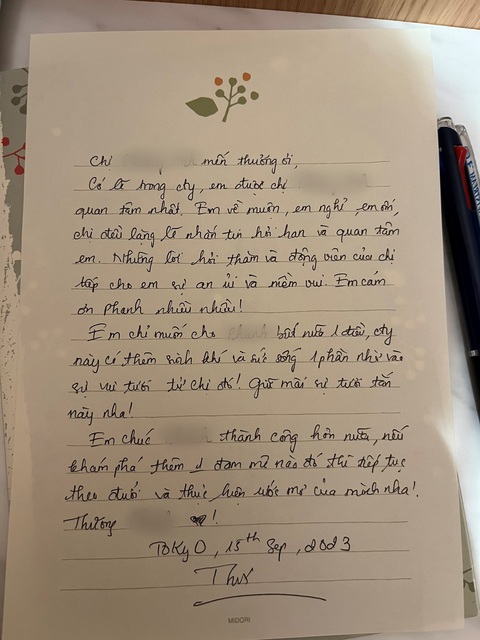 Chị mến thương ơi,
Có lẽ trong cty, em được chị
quan tâm nhất. Em về muộn, em nghỉ, em ốm,
chị đều lặng lẽ nhắn tin hỏi han và quan tâm
em. Những lời hỏi thăm và động viên của chị
tiếp cho em sự an ủi và niềm vui. Em cám
ơn Phanh nhiều nhiều!
Em chỉ muốn cho biết nữa 1 điều, cty
này có thêm sinh khí và sức sống 1 phần nhờ vào
sự vui tươi từ chị đó! Giữ mãi sự tươi tắn
này nha!
Em chúc thành công hơn nữa, nếu
khám phá thêm 1 đam mê nào đó thì tiếp tục
theo đuổi và thực hiện ước mơ của mình nha!
Thương !
TOKYO, 15th Sep, 2023
MIDORI